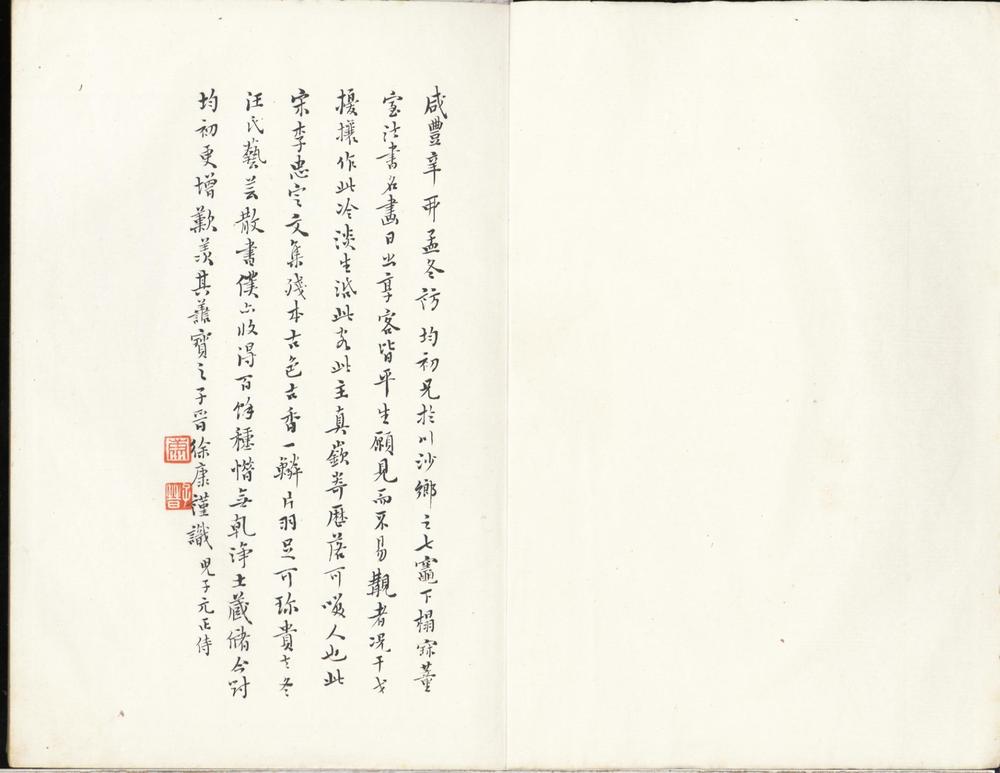 咸豐辛酉孟冬訪均初兄於川沙鄉之七竈下榻寀董
室法書名畫日出享客皆平生願見而不易覯者況干戈
擾攘作此冷淡生活此客此主真嶔奇歷落可笑人也此
宋李忠定文集殘本古色古香一鱗片羽足可珍貴去冬
汪氏藝芸散書僕亦收得百餘種惜無乾淨土藏儲今對
均初更增歎羨其善寶之子晉徐康謹識兒子元正侍
康
子晉